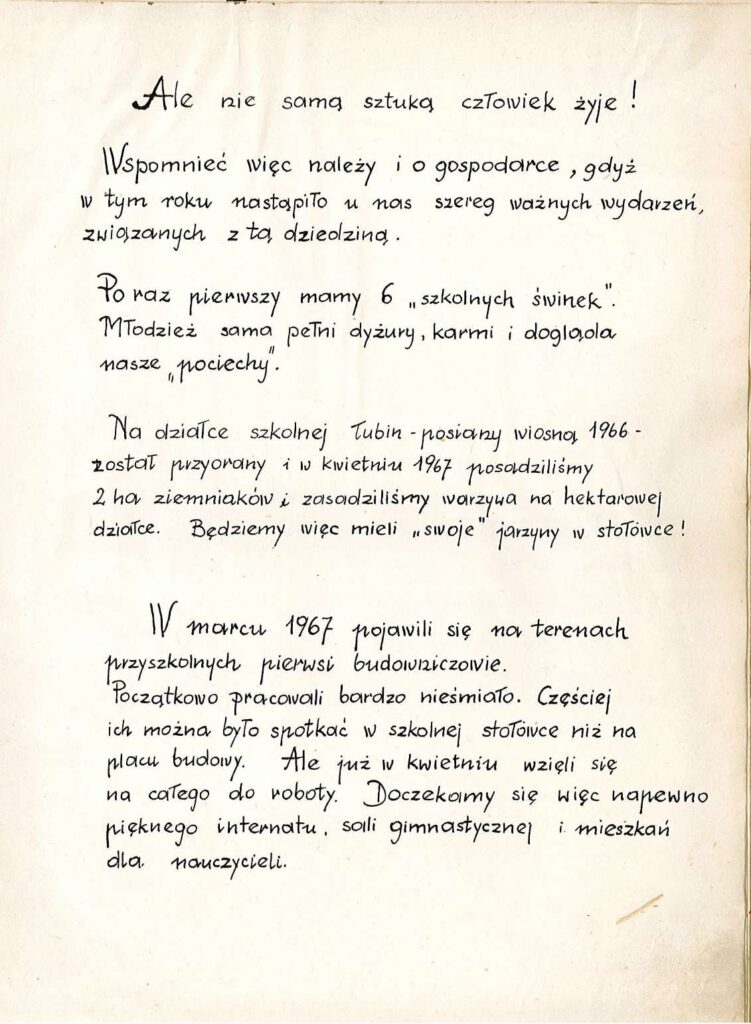 Ale nie samą sztuką człowiek żyje!
Wspomnieć więc należy i o gospodarce, gdyż
w tym roku nastąpiło u nas szereg ważnych wydarzeń,
związanych z tą dziedziną.
Po raz pierwszy mamy 6 „szkolnych świnek".
Młodzież sama pełni dyżury, karmi i dogląda
nasze „pociechy".
Na działce szkolnej łubin - posiany wiosną 1966 -
został przyorany i w kwietniu 1967 posadziliśmy
2 ha ziemniaków i zasadziliśmy warzywa na hektarowej
działce. Będziemy więc mieli „swoje" jarzyny w stołówce!
W marcu 1967 pojawili się na terenach
przyszkolnych pierwsi budowniczowie.
Początkowo pracowali bardzo nieśmiało. Częściej
ich można było spotkać w szkolnej stołówce niż na
placu budowy. Ale już w kwietniu wzięli się
na całego do roboty. Doczekamy się więc napewno
pięknego internatu, sali gimnastycznej i mieszkań
dla nauczycieli.